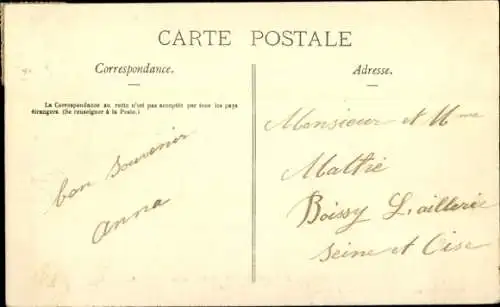 CARTE POSTALE
Correspondance.
La Correspondance au recto n'est pas acceptée par tous les pays
étrangers. (Se renseigner à la Poste.)
bon souvenir
Anna
Adresse.
Monsieur et Mme
Mattié
Boissy L'aillerie
Seine et Oise